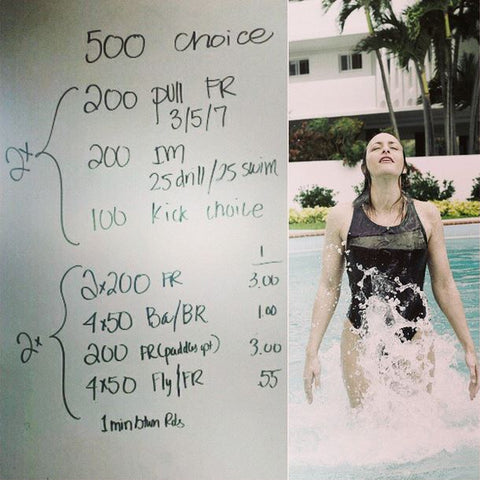 500 choice
2x
200 pull FR
3/5/7
200 IM
25 drill/25 swim
100 kick choice
1
2x
2x200 FR 3.00
4x50 Ba/BR 1.00
200 FR (paddles opt) 3.00
4x50 Fly/FR .55
1 min btwn Rds